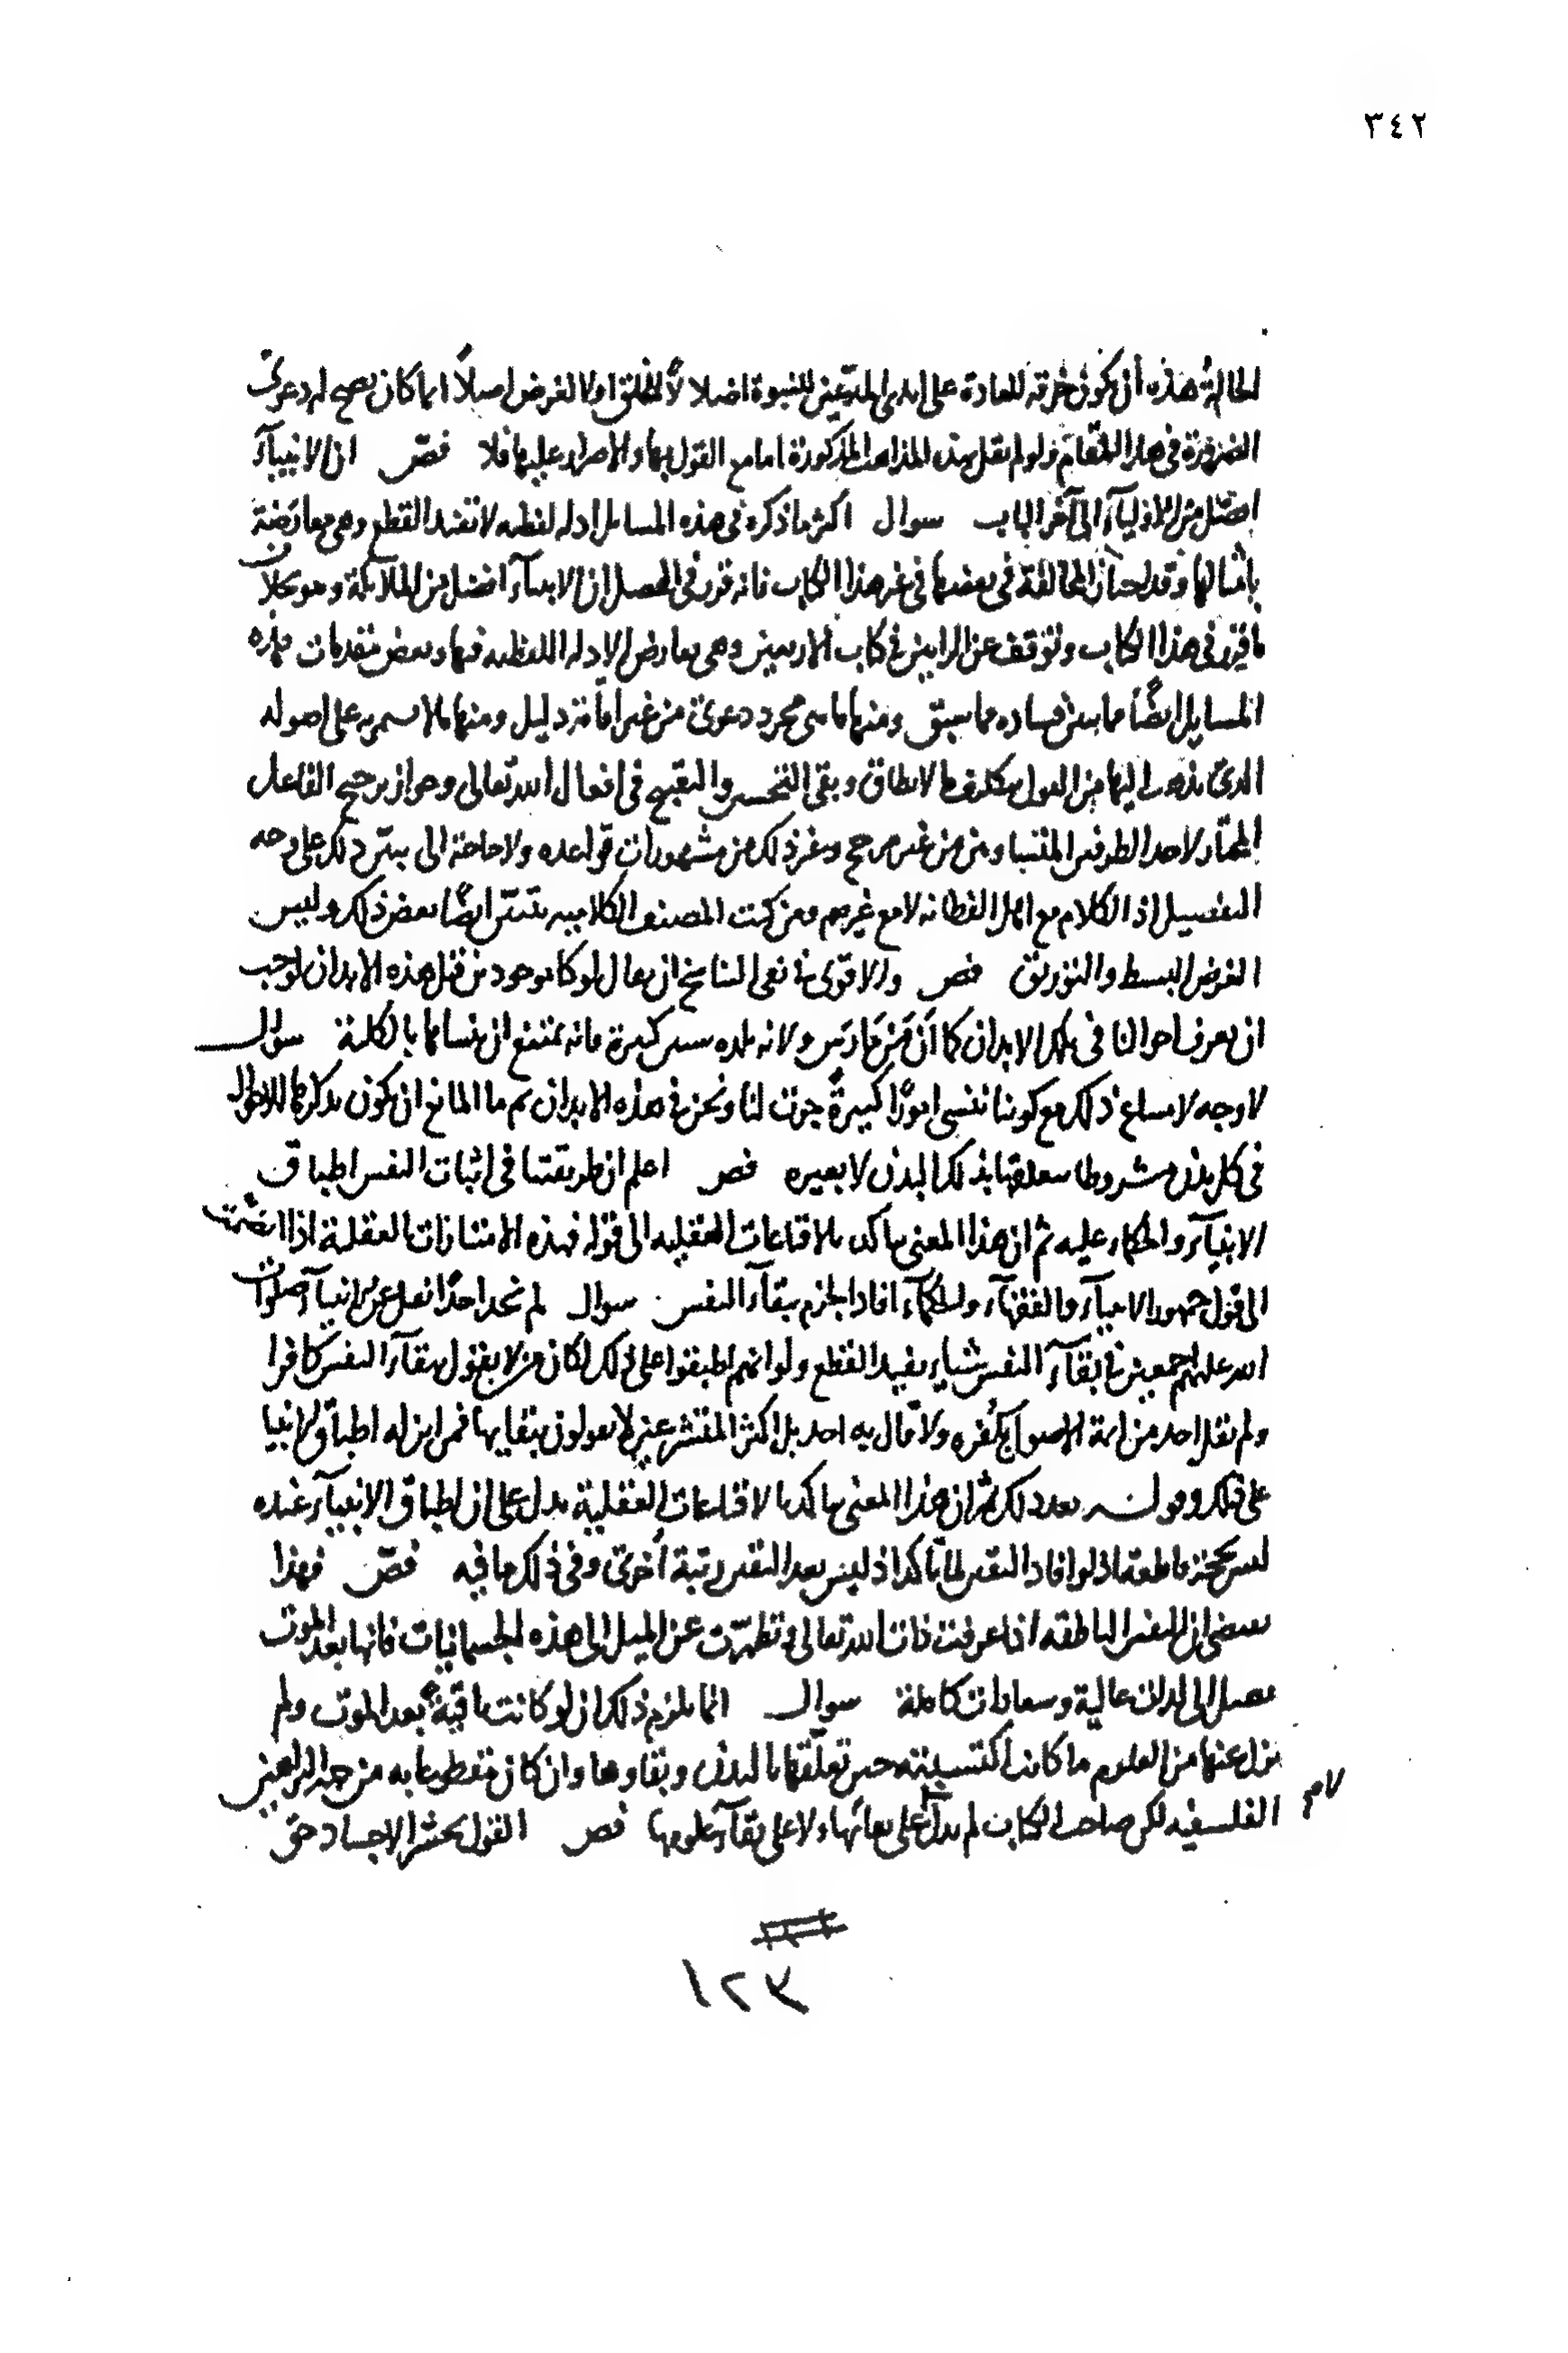 ٣٤٢
الحالة هذه أن يكون خرقه للعادة على ايدي المدّعين للنبوة اضلالاً للخلق اولا لغرض اصلاً انما كان يصح له دعوى
الضرورة في هذا المقام لو لم يقل بهذه المذاهب المذكورة اما مع القول بها والاصرار عليها فلا فصّ ان الانبيآء
افضل من الاوليآء الى آخر الباب سوال اكثر ما ذكره في هذه المسايل ادله لفظيه لا تفيد القطع وهي معارَضة
بامثالها وقد اختار المخالفة في بعضها في غير هذا الكتاب فانه قرر في المحصل ان الانبيآء افضل من الملايكة وهو بخلاف
ما قرر في هذا الكتاب وتوقف عن الرايين في كتاب الاربعين وهي تعارض الادله اللفظيه فيها وبعض مقدمات هذه
المسايل ايضًا مما بين فساده مما سبق ومنها ما هي مجرد دعوى من غير اقامة دليل ومنها ما لا يستمر به على اصوله
الذي يذهب اليها من القول بتكليف ما لا يطاق ونفي التحسين والتقبيح في افعال الله تعالى وجواز ترجيح الفاعل
المختار لاحد الطرفين المتساويين من غير مرجح وغير ذلك من مشهورات قواعده ولا حاجة الى تبيّن ذلك على وجه
التفصيل اذ الكلام مع اهل الفطانه لا مع غيرهم ومن كتب المصنف الكلاميه يتبيّن ايضًا بعض ذلك وليس
الغرض البسط والتوريق فص والاقوى في نفي التناسخ ان يقال لو كنا موجودين قبل هذه الابدان لوجب
ان نعرف احوالنا في تلك الابدان كما أنّ مَن مَارَسَ ولاية بلده سنين كثيرة فانه يمتنع ان ينساها بالكلية سوال
لا وجه لامتناع ذلك مع كوننا ننسى امورًا كثيرةً جرت لنا ونحن في هذه الابدان ثم ما المانع ان يكون تذكرها للاحوال
في كل بدن مشروطا بتعلقها بذلك البدن لا بغيره فص اعلم ان طريقتنا في اثبات النفس اطباق
الانبيآء والحكماء عليه ثم ان هذا المعنى يتاكد بالاقناعات العقليه الى قوله فهذه الاعتبارات العقلية اذا انضمّت
الى قول جمهور الانبيآء والفقهآء والحكمآء افاد الجزم ببقآء النفس سوال لم نجد احدًا نقل عن الانبيآء صلوات
الله عليهم اجمعين في بقآء النفس شياء يفيد القطع ولو انهم اطبقوا على ذلك لكان من لا يقول ببقآء النفس كافرا
ولم ينقل احد من ايمة الاصول بكُفره ولا قال به احد بل اكثر المتشرعين لا يقولون ببقايها فمن اين له اطباق الانبيا
على ذلك وقوله بعد ذلك ثم ان هذا المعنى يتاكد بالاقناعات العقلية يدل على ان اطباق الانبيآء عنده
ليس بحجة قاطعة اذ لو افاد اليقين لما تاكد اذ ليس بعد اليقين رتبة اُخرى وفي ذلك ما فيه فصّ فهذا
يقتضي ان النفس الناطقه اذا عرفت ذات الله تعالى وتطهّرت عن الميل الى هذه الجسمانيات فانها بعد الموت
تصل الى لذات عالية وسعادات كاملة سوال انما يلزم ذلك ان لو كانت باقيةً بعد الموت ولم
يزل عنها من العلوم ما كانت اكتسبته حين تعلّقها بالبدن وبقاوها وان كان مقطوعا به من جهة البراهين
الفلسفيه لكن صاحب الكتاب لم يدل على بقائها ولا على بقآء علومها فص القول بحشر الاجساد حق
١٢٧